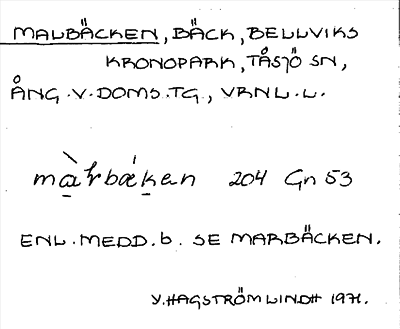 MALBÄCKEN, BÄCK, BELLVIKS
KRONOPARK, TÅSJÖ SN,
ÅNG.V.DOMS.TG., VRNL.L.
màrbækan 204 Gn 53
ENL. MEDD. b. SE MARBÄCKEN.
Y. HAGSTRÖM LINDH 1971.